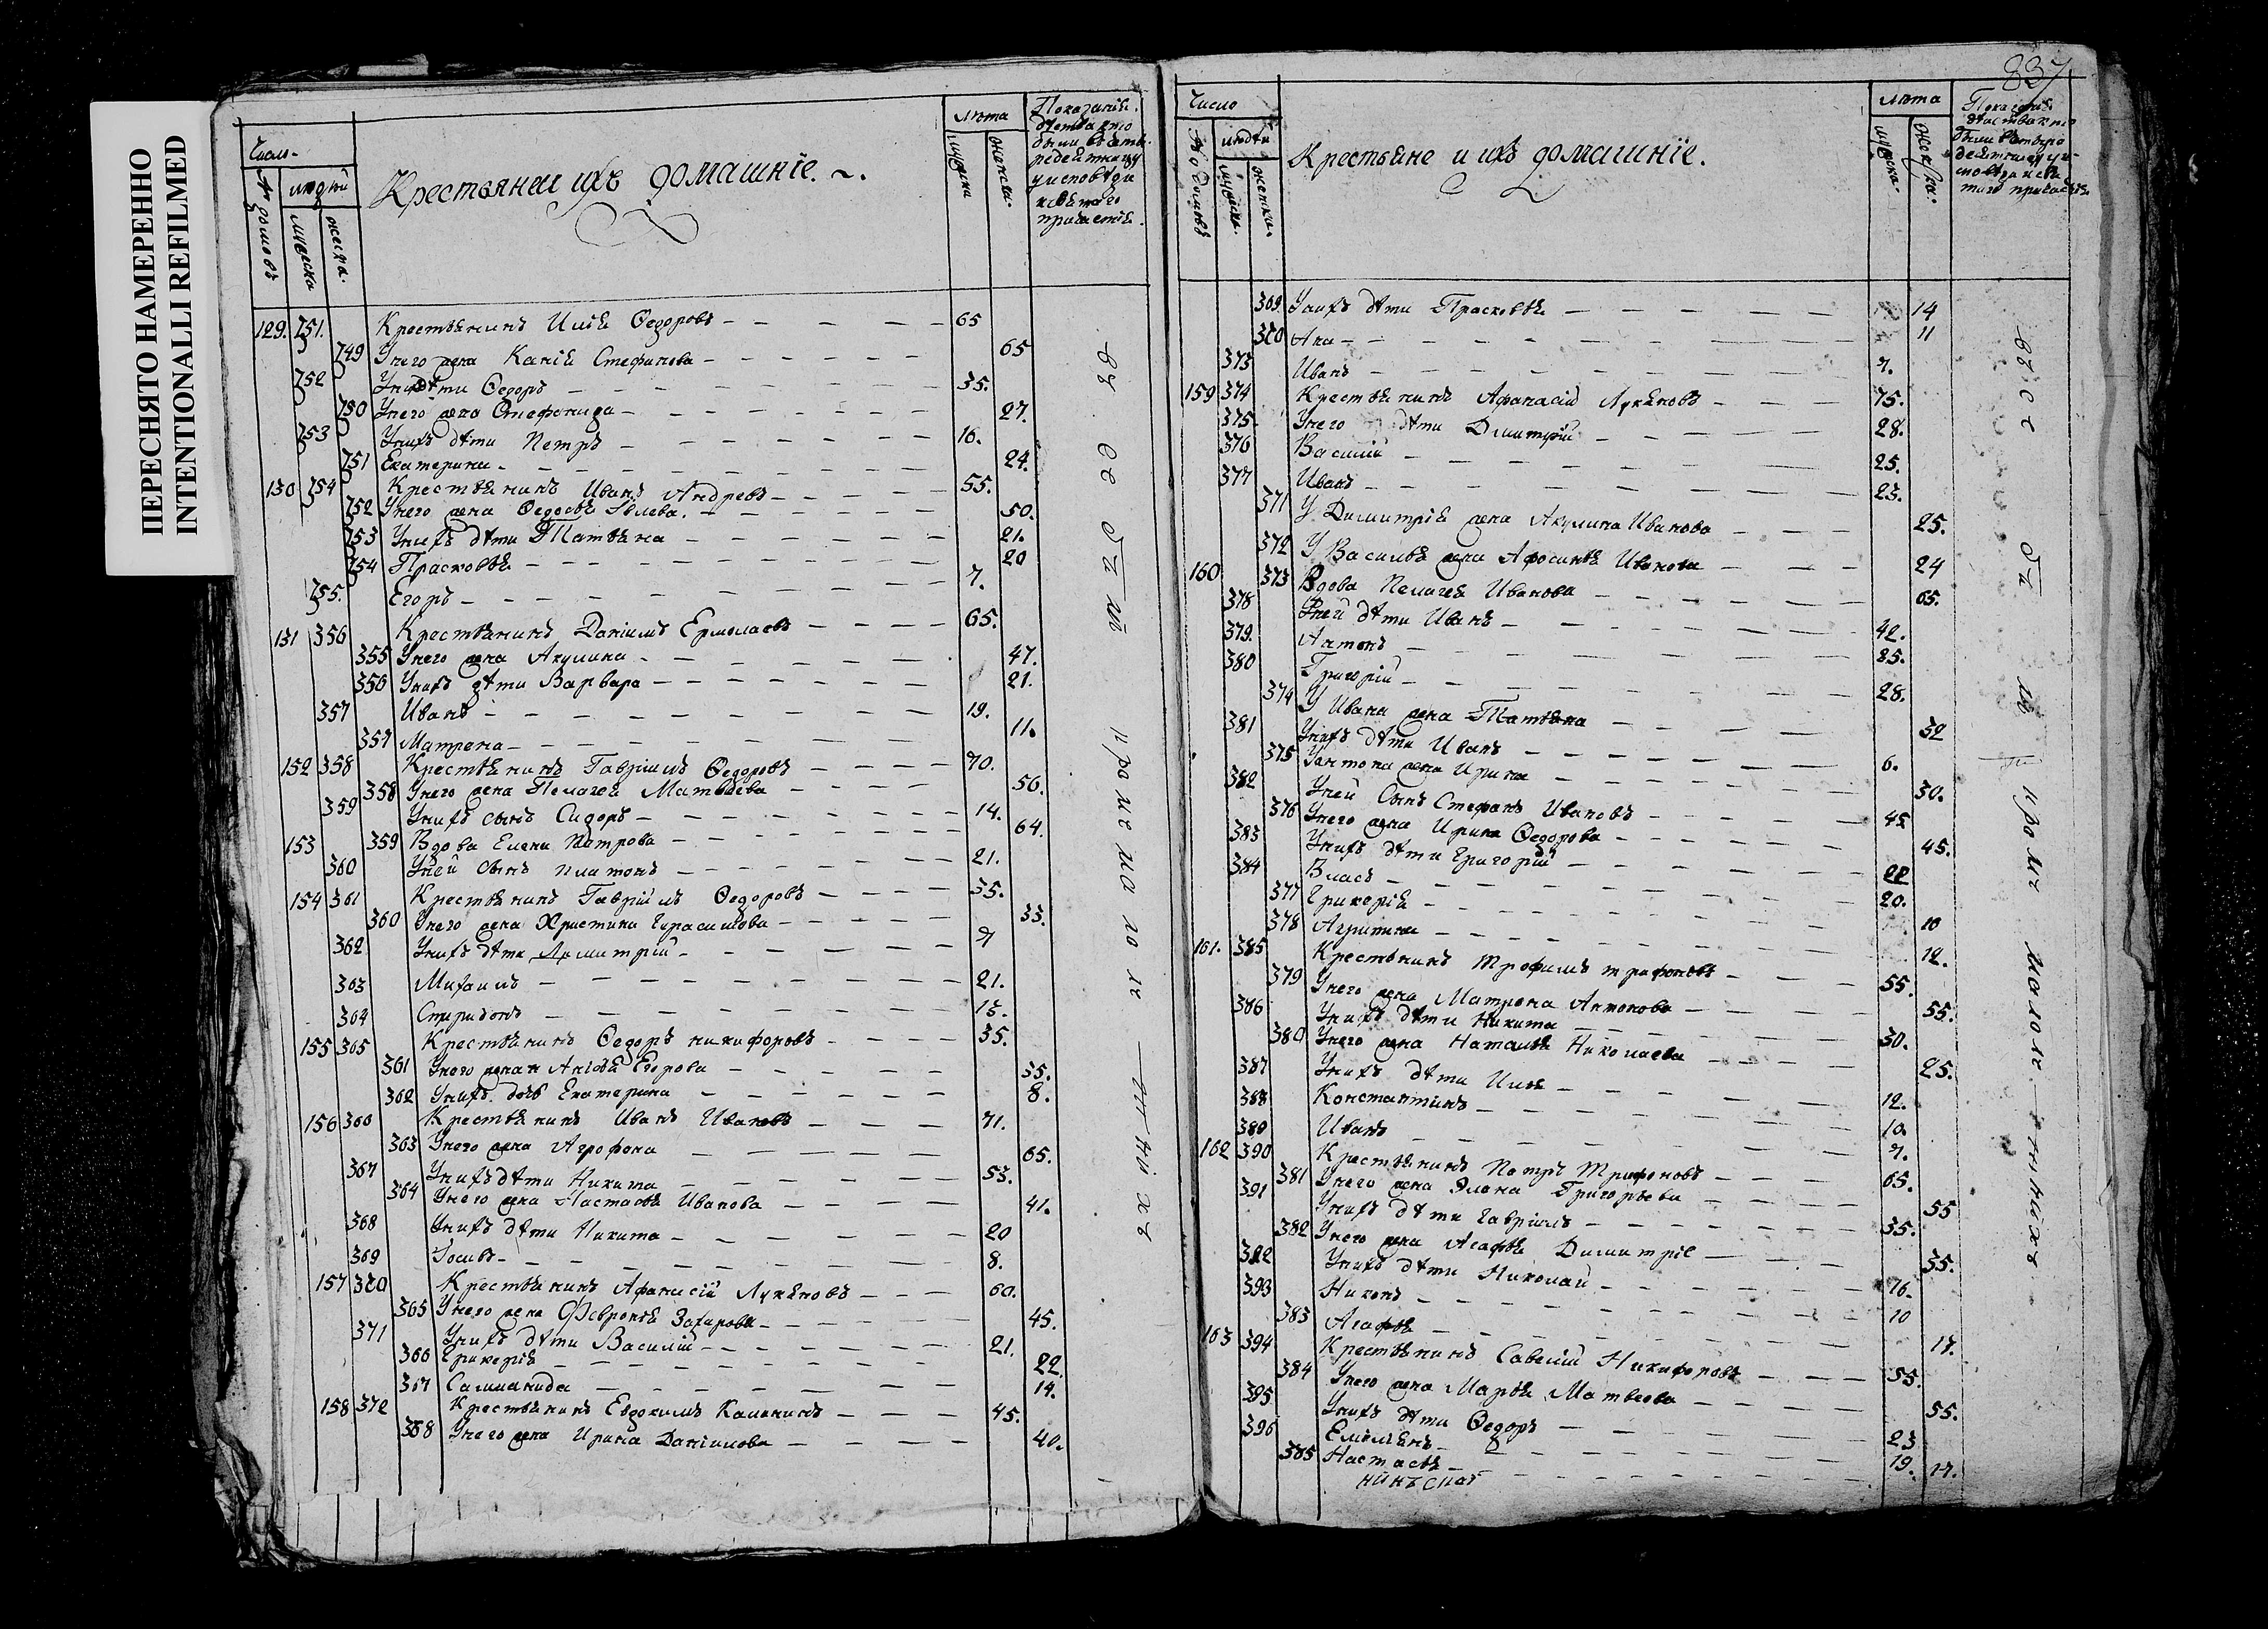 ПЕРЕСНЯТО НАМЕРЕННО
INTENTIONALLI REFILMED
837
Число
людей
Крестьяне и ихъ домашніе.
лѣта
129. 751. Крестьянинъ Илья Ѳедоровъ 65
749 У него жена Стефанова 65
752 У них дѣти Ѳедоръ 35.
750 У него жена 27.
753 У нихъ дѣти Петръ 16.
751 Екатерина 24.
130 754 Крестьянинъ Иванъ Андревъ 55.
752 У него жена Ѳедосья 50.
753 У нихъ дѣти Татьяна 21.
754 Прасковья 20
755. Егоръ 7.
131 356 Крестьянинъ Даніилъ Ермолаевъ 65.
355 У него жена Акулина 47.
356 У нихъ дѣти Варвара 21.
357 Иванъ 19.
357 Матрена 11.
152 358 Крестьянинъ Гавріилъ Ѳедоровъ 70.
358 У него жена Пелагея Матвѣева 56.
359 У нихъ сынъ Сидоръ 14.
153 359 Вдова Елена Петрова 64.
360 У ней сынъ Платонъ 21.
154 361 Крестьянинъ Гавріилъ Ѳедоровъ 35.
360 У него жена Христина Герасимова 33.
362 У нихъ дѣти Димитрій
363 Михаилъ 21.
364 Спиридонъ 13.
155 365 Крестьянинъ Ѳедоръ Никифоровъ 35.
361 У него жена Егорова 35.
362 У нихъ дочь Екатерина 8.
156 366 Крестьянинъ Иванъ Ивановъ 71.
363 У него жена Агрофена 65.
367 У нихъ дѣти Никита 53.
364 У него жена Настасья Иванова 41.
368 У нихъ дѣти Никита 20
369 Іосивъ 8.
157 370 Крестьянинъ Афанасій Лукяновъ 60.
365 У него жена Февронья Захарова 45.
371 У нихъ дѣти Василій 21.
366 Гликерія 22.
367 14.
158 372 Крестьянинъ Евдокимъ Калининъ 45.
368 У него жена Ирина Даніилова 40.
Число
людей
Крестьяне и ихъ домашніе.
лѣта
369 У нихъ дѣти Прасковья 14
370 Ана 11
373 Иванъ 7.
159 374 Крестьянинъ Афанасій Лукяновъ 75.
375 У него дѣти Димитрій 28.
376 Василій 25.
377 Иванъ 23.
371 У Димитрія жена Акулина Иванова 25.
372 У Василья жена Афосинья Иванова 24
160 373 Вдова Пелагея Иванова 65.
378 У ней дѣти Иванъ 42.
379. Антонъ 25.
380 Григорій 28.
374 У Ивана жена Татьяна 32
381 У нихъ дѣти Иванъ 6.
375 У Антона жена Ирина 30.
382 У ней сынъ Стефанъ Ивановъ 45
376 У него жена Ирина Ѳедорова 45.
383 У нихъ дѣти Григорій 22
384 Власъ 20.
377 Гликерія 10
378 Агрипина 12.
161. 385 Крестьнинъ Трофимъ Трифоновъ 55.
379 У него жена Матрена Антонова 55.
386 У нихъ дѣти Никита 30.
380 У него жена Наталья Николаева 25.
387 У нихъ дѣти Илья 12.
388 Константинъ 10.
389 Иванъ 7.
162 390 Крестьянинъ Петръ Трифоновъ 65.
381 У него жена Элена Григорьева 55
391 У нихъ дѣти Гавріилъ 35.
382 У него жена Агафья Димитріе 35.
392 У нихъ дѣти Николай 16.
393 Никонъ 10
383 Агафья 17.
163 394 Крестьянинъ Савелій Никифоровъ 55.
384 У него жена Марья Матвеева 55.
395 У нихъ дѣти Ѳедоръ 23
396 Емельянъ 19.
385 Настасья 17.